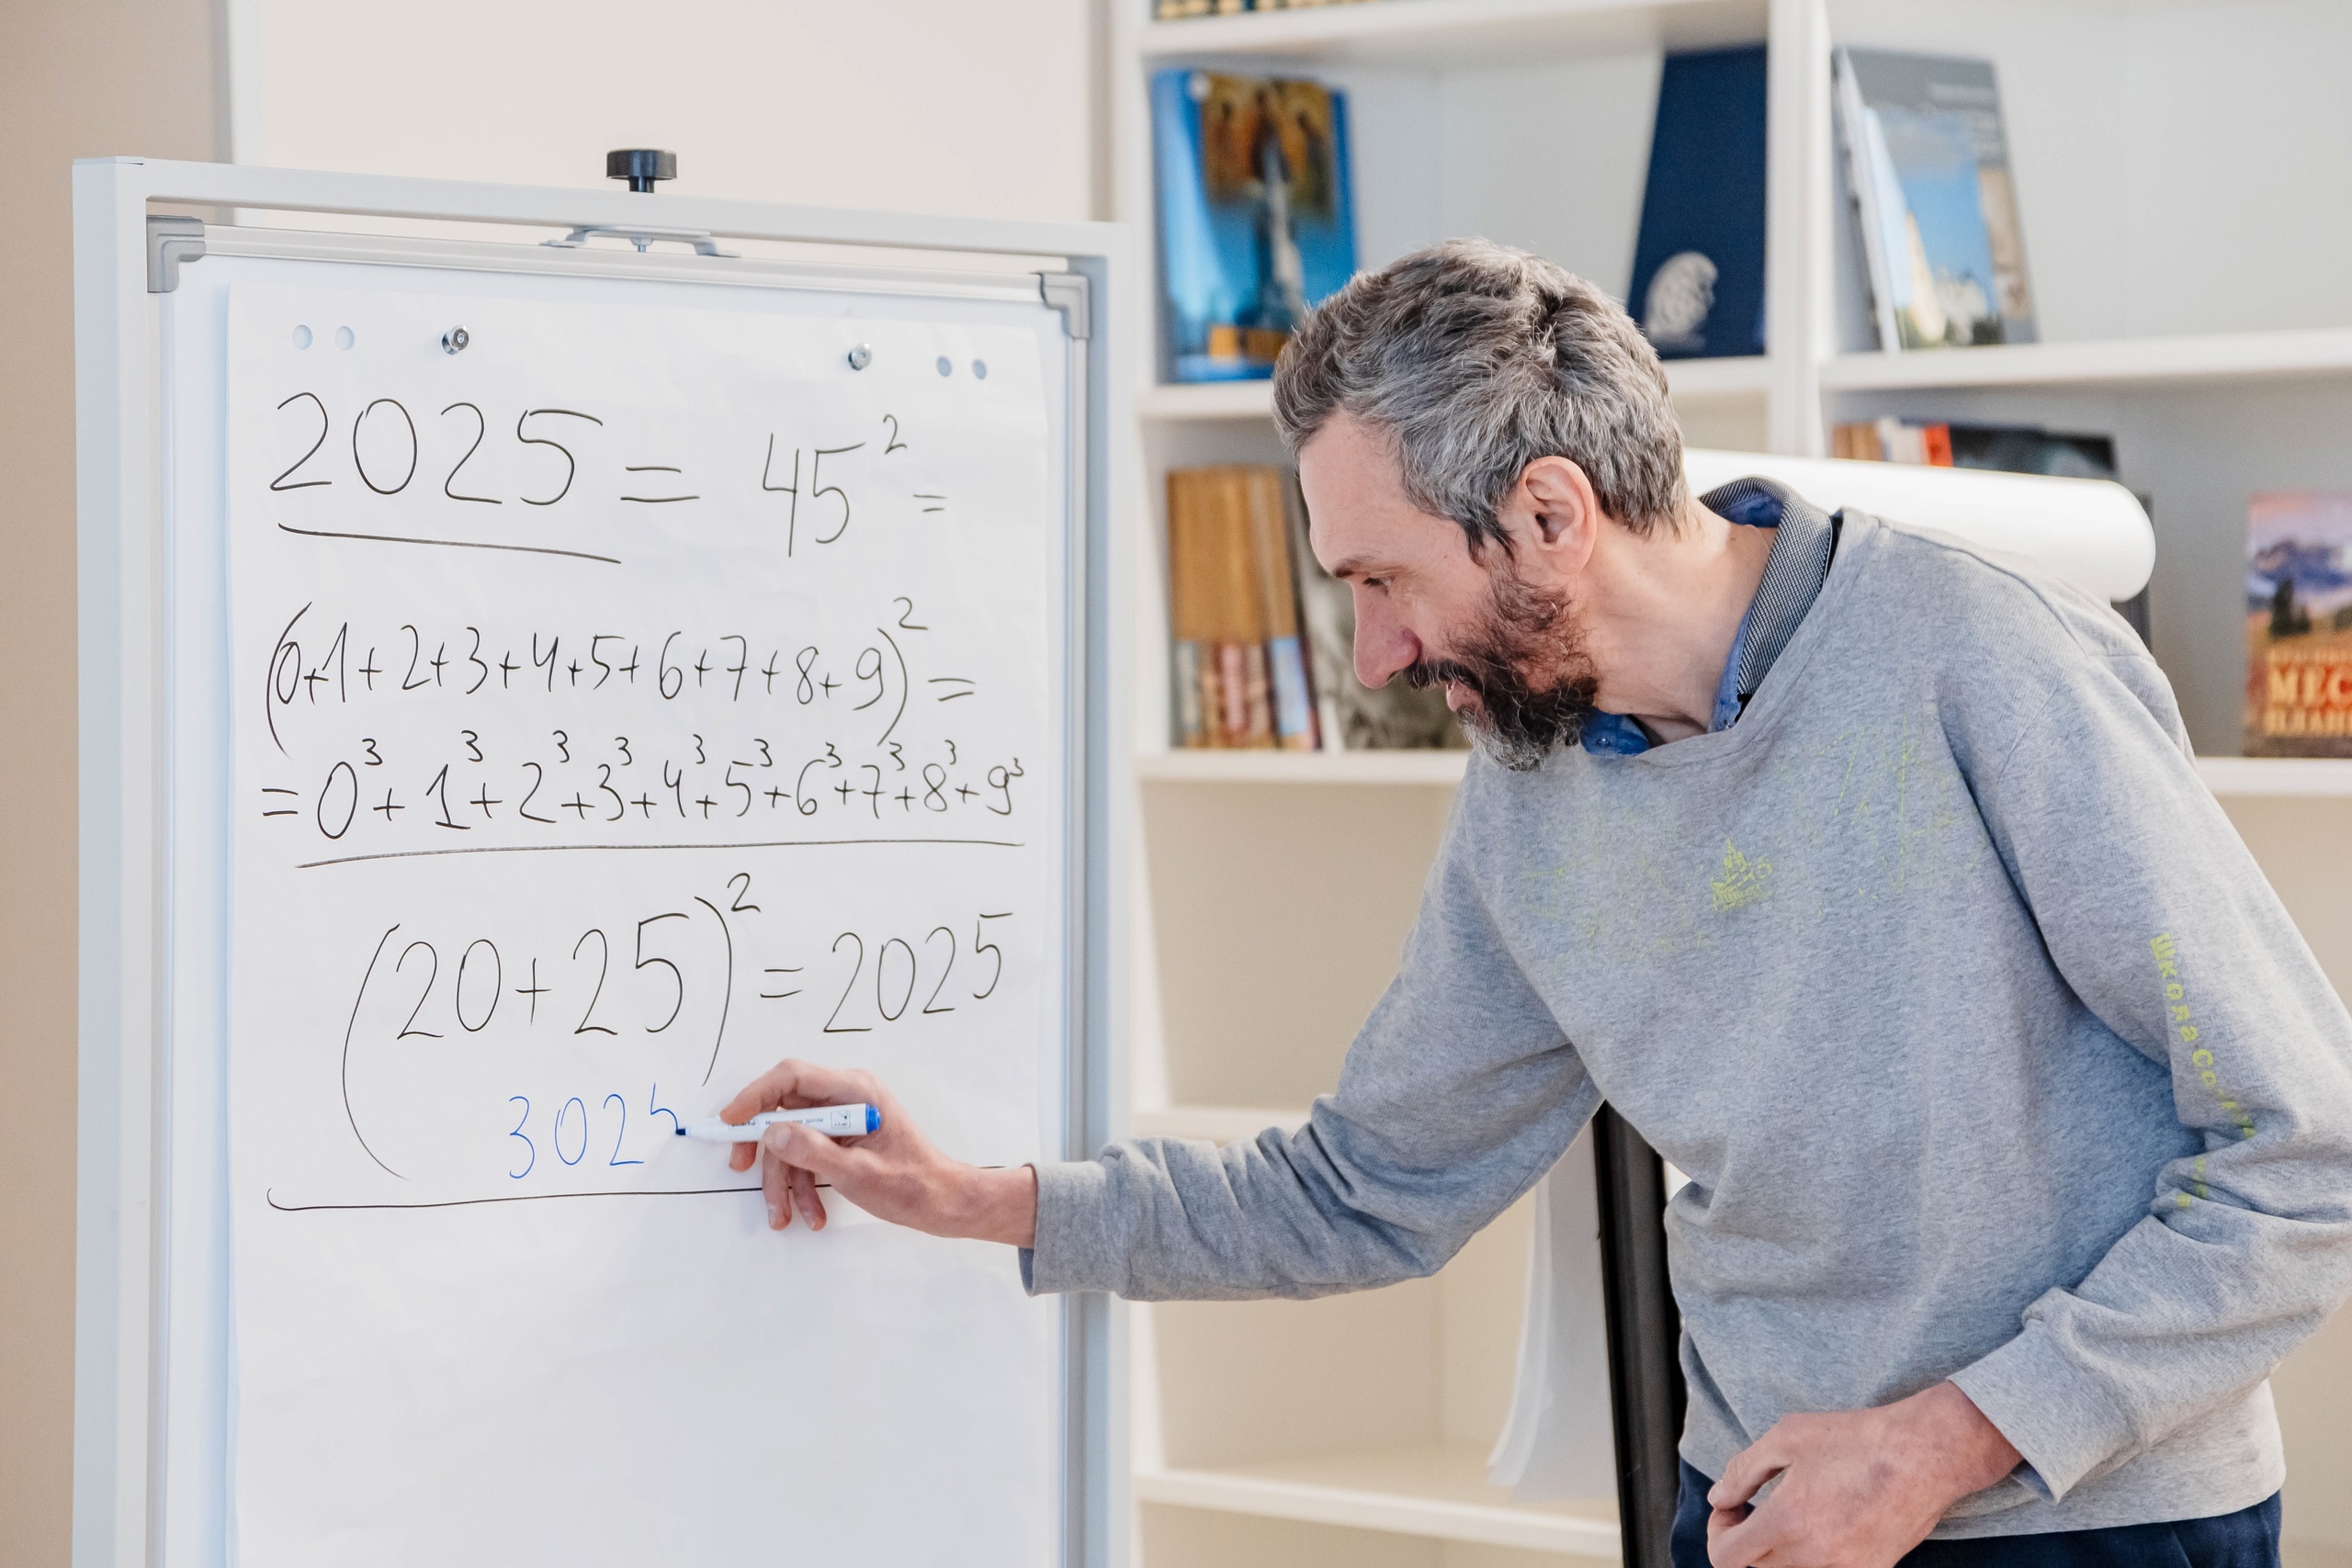 2025 = 45² =
(0+1+2+3+4+5+6+7+8+9)² =
= 0³+1³+2³+3³+4³+5³+6³+7³+8³+9³
(20+25)² = 2025
3025
Школа